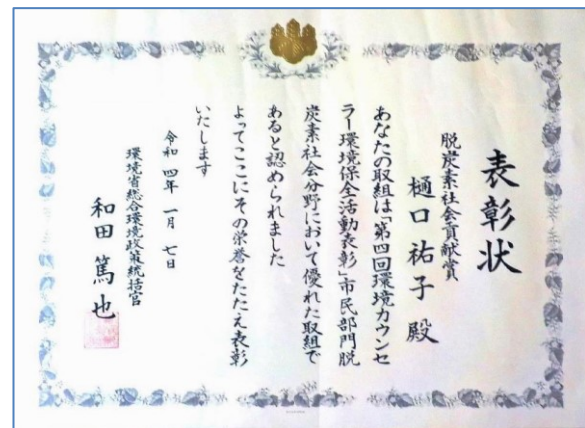 表彰状
脱炭素社会貢献賞
樋口祐子 殿
あなたの取組は「第四回環境カウンセ
ラー環境保全活動表彰」市民部門脱
炭素社会分野において優れた取組で
あると認められました
よってここにその栄誉をたたえ表彰
いたします
令和四年一月七日
環境省総合環境政策統括官
和田篤也